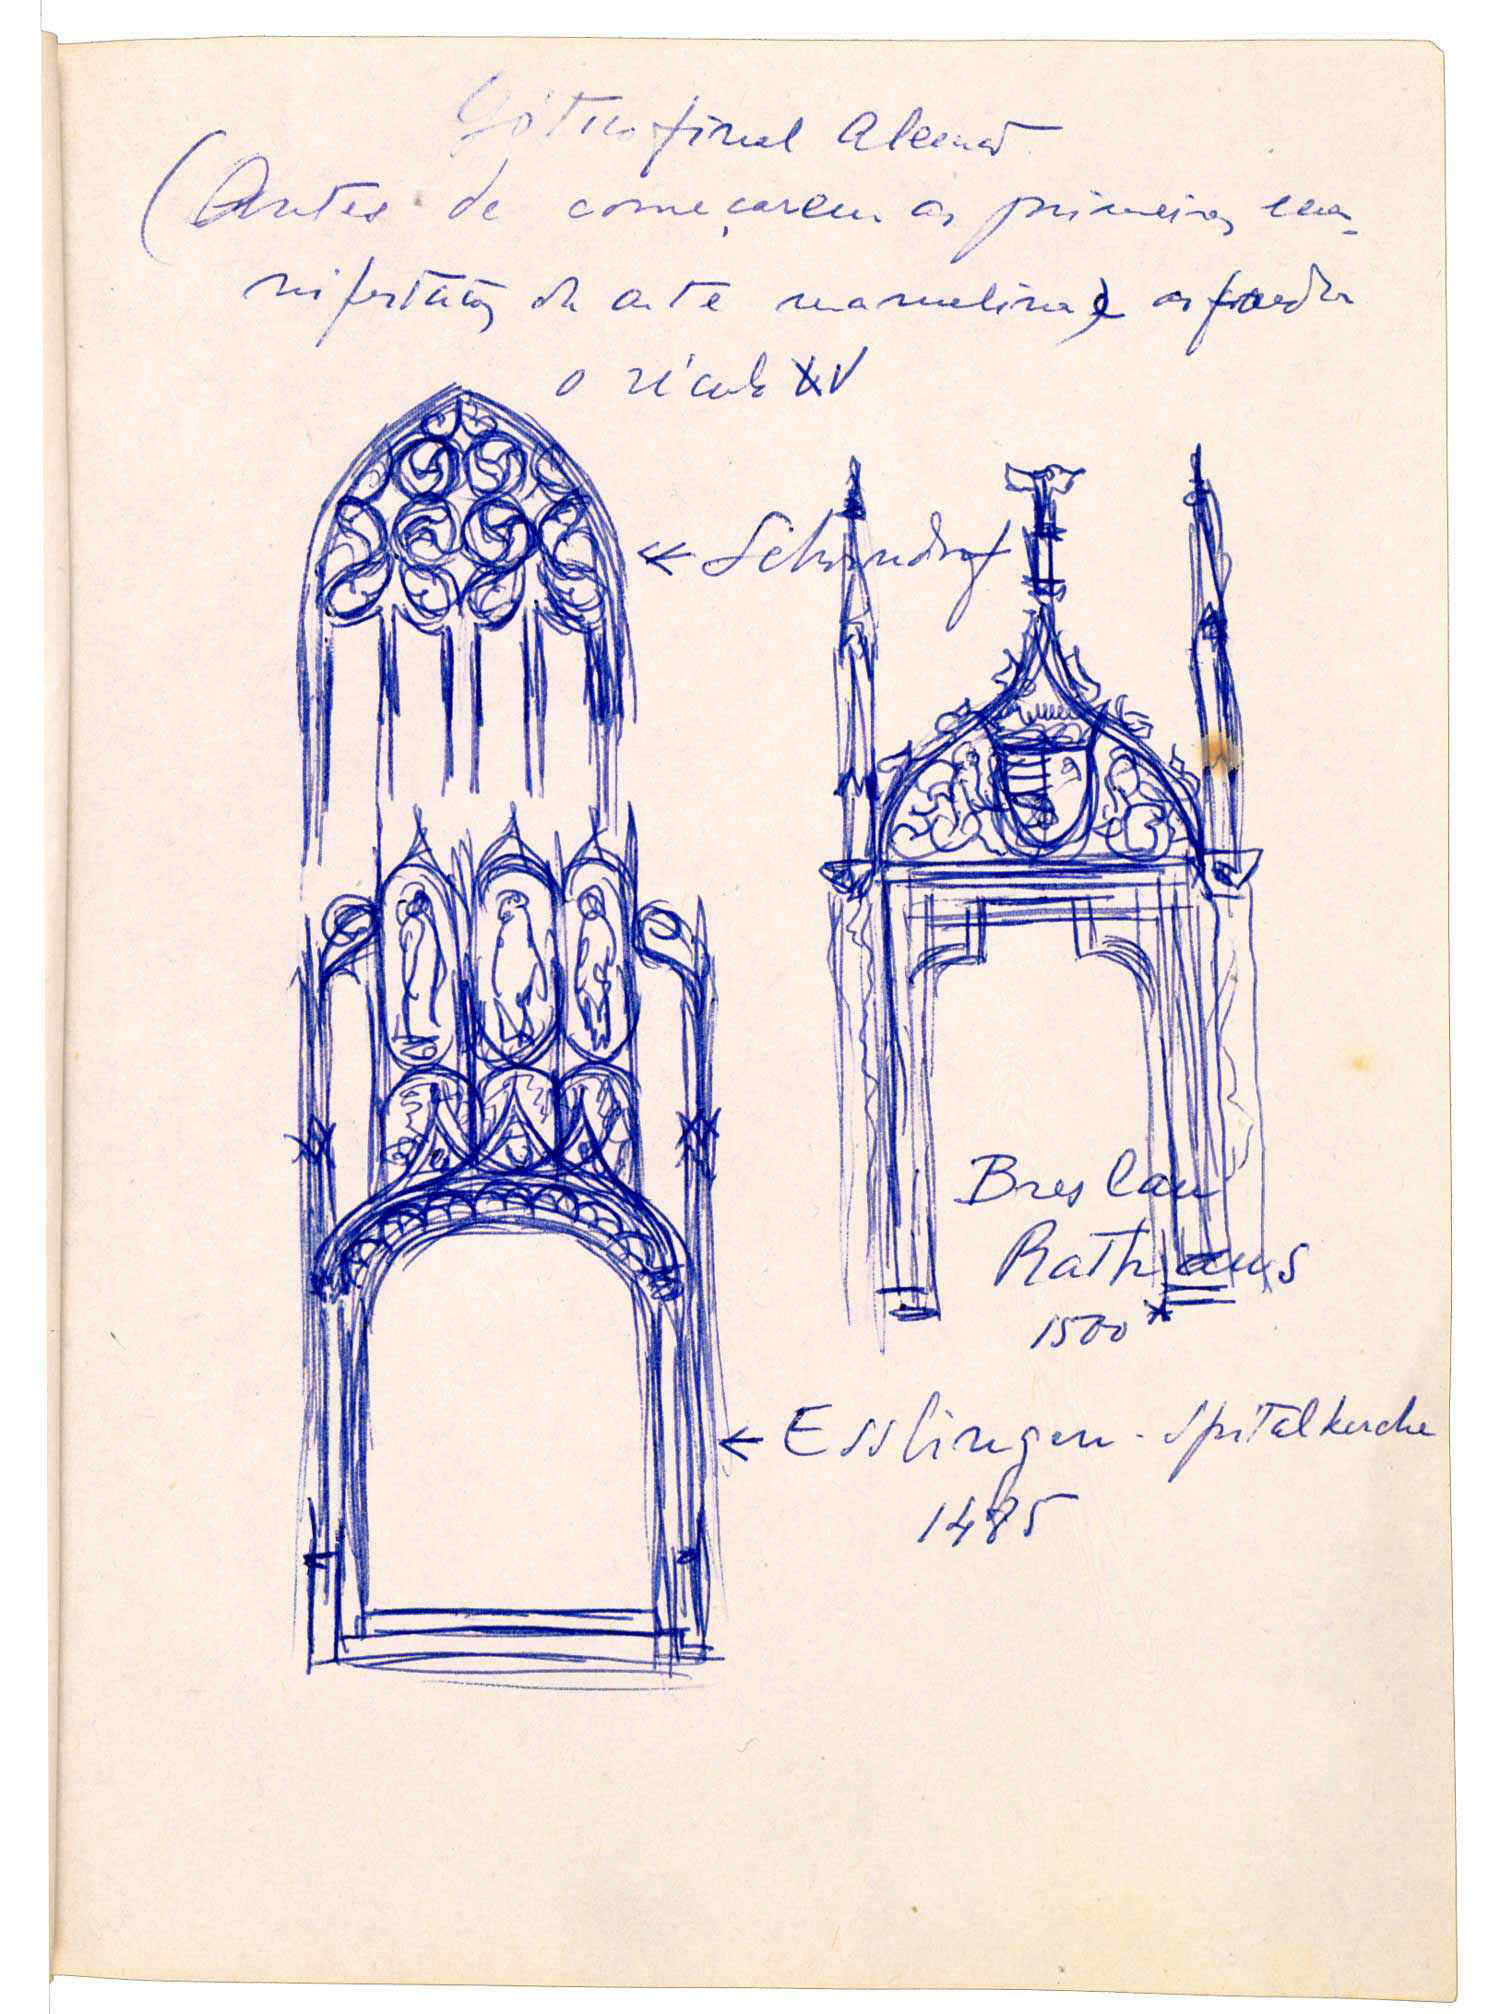 Gótico final Alemão
(Antes de começarem as primeiras ma-
nifestações da arte manuelina)
o século XV
Schorndorf
Breslau
Rathaus
1500
Esslingen - Spitalkirche
1485